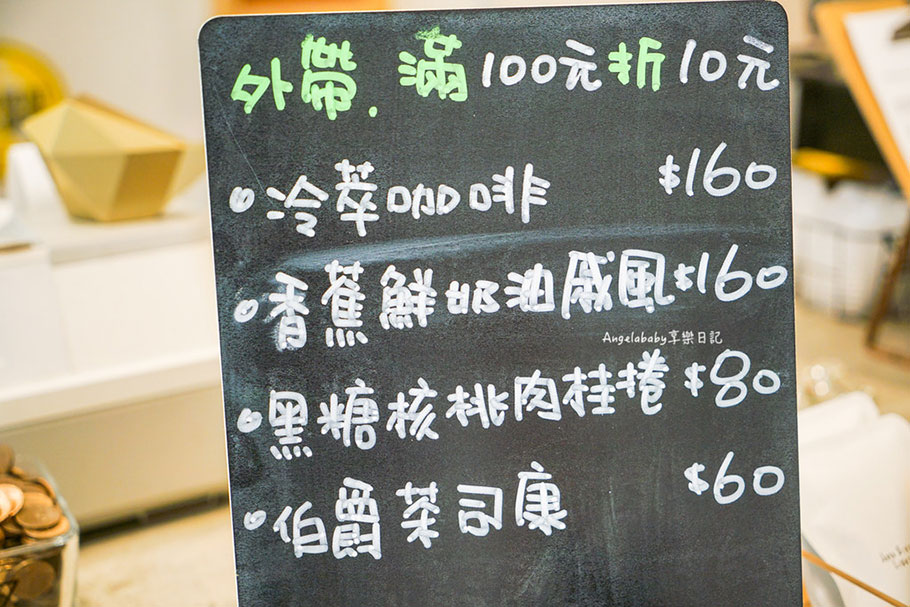 外帶.滿100元折10元
•冷萃咖啡 $160
•香蕉鮮奶油戚風$160
Angelababy享樂日記
•黑糖核桃肉桂捲 $80
•伯爵茶司康 $60